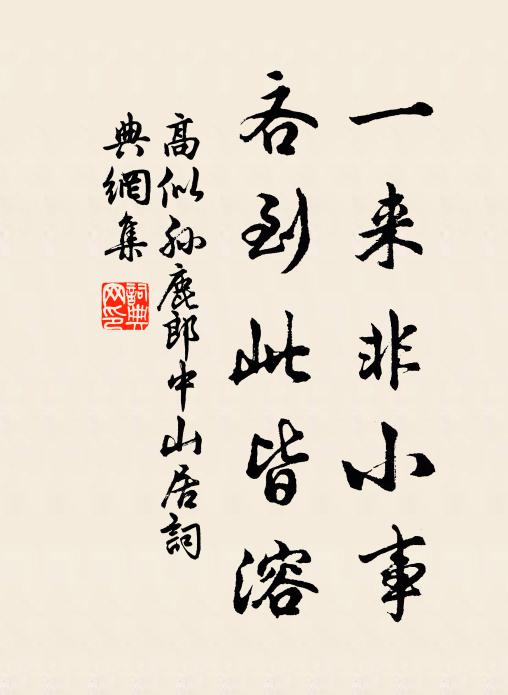 一来非小事
吝到此皆溶
高似孫鹿郎中山居詞
典網集
詞典
网印